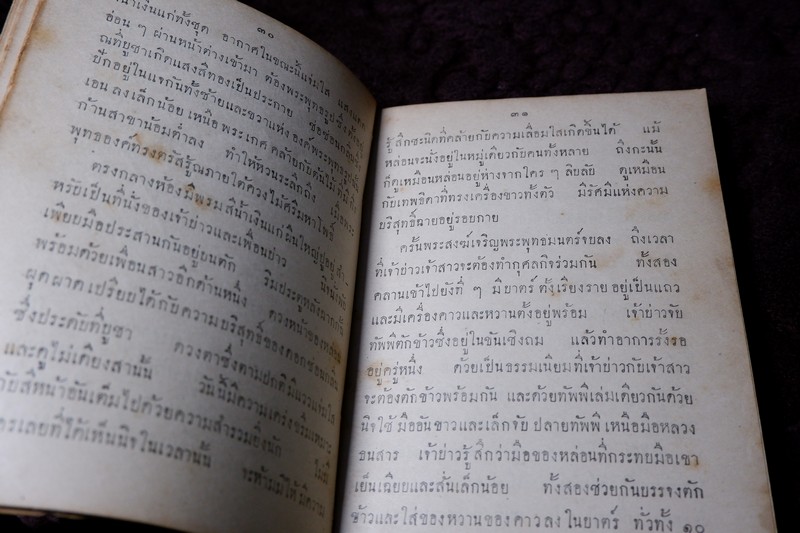 ๓๐
น้ำเงินแก่ทั้งชุด อากาศในขณะนี้แจ่มใส แสงแดด
อ่อน ๆ ผ่านหน้าต่างเข้ามา ต้องพระพุทธรูปซึ่งตั้งอยู่
ณที่บูชาเกิดแสงสีทองเป็นประกาย ช่อซ่อนกลิ่นที่
ปักอยู่ในแจกันทั้งซ้ายและขวาแห่งองค์พระพุทธรูปนั้น
เอนลงเล็กน้อย เหนือพระเกศ คล้ายกับต้นไม้ใหญ่ซึ่ง
ก้านสาขาน้อมต่ำลง ทำให้หวนระลึกถึง เมื่อพระ
พุทธองค์ทรงตรัสรู้ณภายใต้ควงไม้ศรีมหาโพธิ์
ตรงกลางห้องมีพรมสีน้ำเงินแก่ผืนใหญ่ปูอยู่สำ
หรับเป็นที่นั่งของเจ้าบ่าวและเพื่อนบ่าว
เพียบมือประสานกันอยู่บนตัก ริมประตูหลังฉากกั้น
พร้อมด้วยเพื่อนสาวอีกด้านหนึ่ง ดวงหน้าของหล่อน
ผุดผาดเปรียบได้กับความบริสุทธิ์ของดอกซ่อนกลิ่น
ซึ่งประดับที่บูชา ดวงตาซึ่งตามปกติมีแววแจ่มใส
และดูไม่เดียงสานั้น วันนี้มีความเคร่งขรึมเหมาะ
กับสีหน้าอันเต็มไปด้วยความสำรวมยิ่งนัก ไม่มี
ใครเลยที่ได้เห็นนิจในเวลานั้น จะห้ามมิให้มีความ
๓๑
รู้สึกชะนิดที่คล้ายกับความเลื่อมใสเกิดขึ้นได้ แม้
หล่อนจะนั่งอยู่ในหมู่เดียวกับคนทั้งหลาย ถึงกะนั้น
ก็ดูเหมือนหล่อนอยู่ห่างจากใคร ๆ ลิบลับ ดูเหมือน
กับเทพธิดาที่ทรงเครื่องขาวทั้งตัว มีรัศมีแห่งความ
บริสุทธิ์ฉายอยู่รอบกาย
ครั้นพระสงฆ์เจริญพระพุทธมนตร์จบลง ถึงเวลา
ที่เจ้าบ่าวเจ้าสาวจะต้องทำกุศลกิจร่วมกัน ทั้งสอง
คลานเข้าไปยังที่ ๆ มีบาตร์ ตั้งเรียงรายอยู่เป็นแถว
และมีเครื่องคาวและหวานตั้งอยู่พร้อม เจ้าบ่าวจับ
ทัพพีตักข้าวซึ่งอยู่ในขันเชิงถม แล้วทำอาการรั้งรอ
อยู่ครู่หนึ่ง ด้วยเป็นธรรมเนียมที่เจ้าบ่าวกับเจ้าสาว
จะต้องตักข้าวพร้อมกัน และด้วยทัพพีเล่มเดียวกันด้วย
นิจใช้มืออันขาวและเล็กจับ ปลายทัพพี เหนือมือหลวง
ธนสาร เจ้าบ่าวรู้สึกว่ามือของหล่อนที่กระทบมือเขา
เย็นเฉียบและสั่นเล็กน้อย ทั้งสองช่วยกันบรรจงตัก
ข้าวและใส่ของหวานของคาวลงในบาตร์ ทั่วทั้ง ๑๐